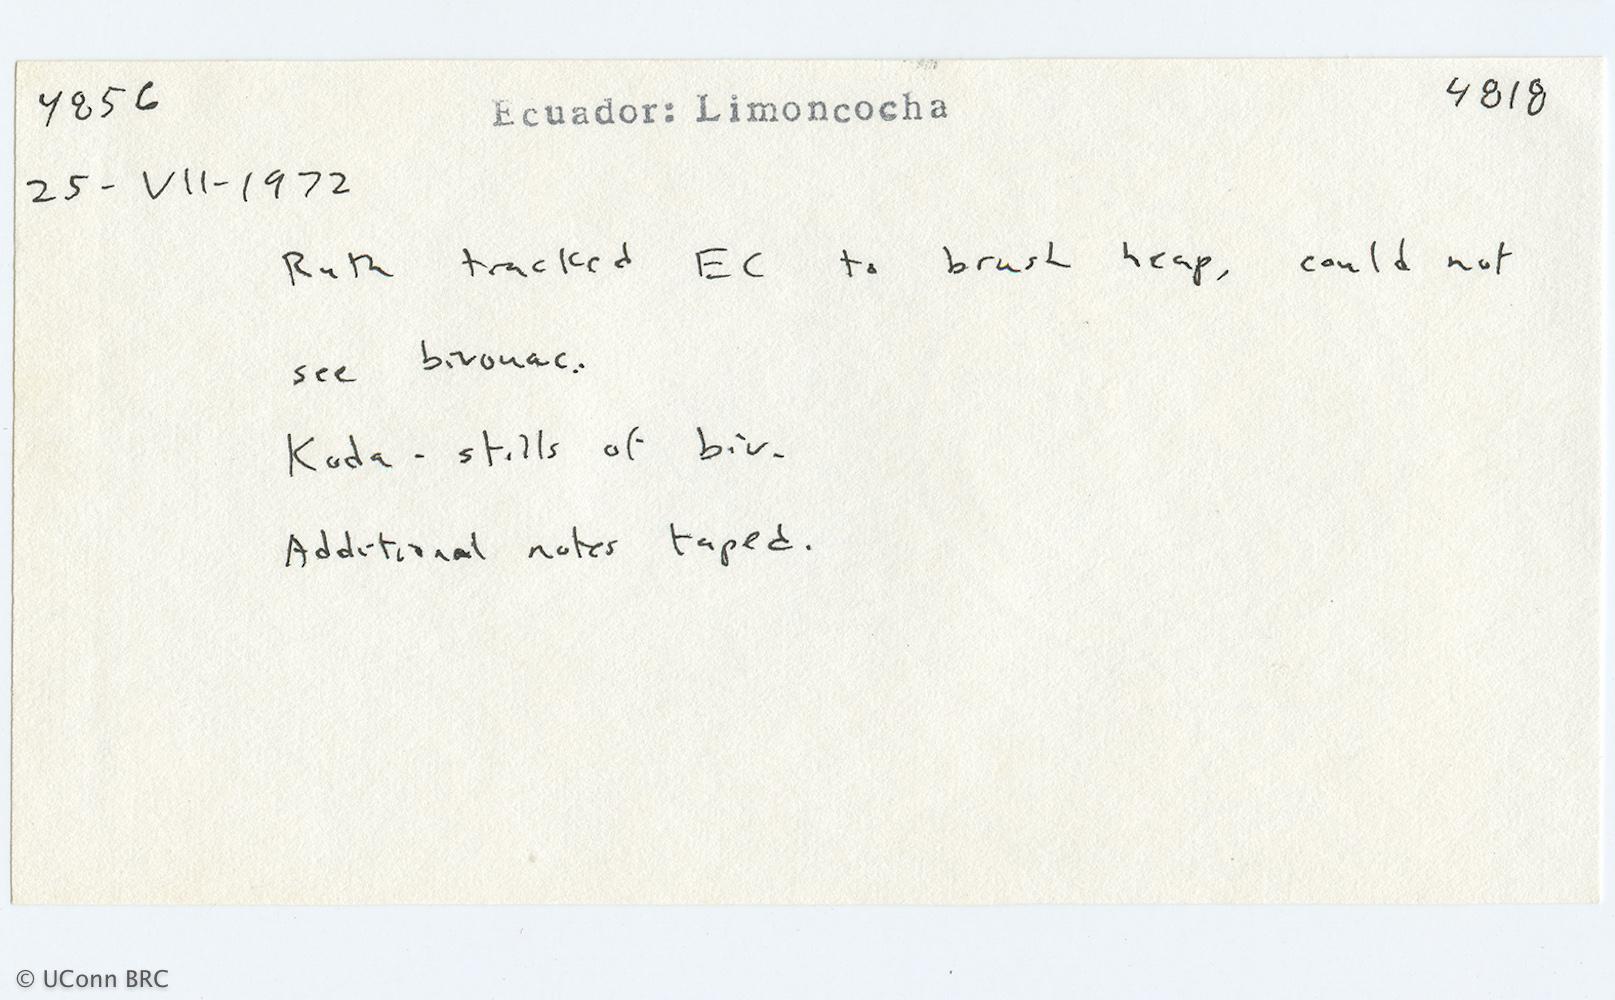 4856 Ecuador: Limoncocha 4818
25-VII-1972
Ruth tracked EC to brush heap, could not
see bivouac.
Koda - stills of biv.
Additional notes taped.
© UConn BRC